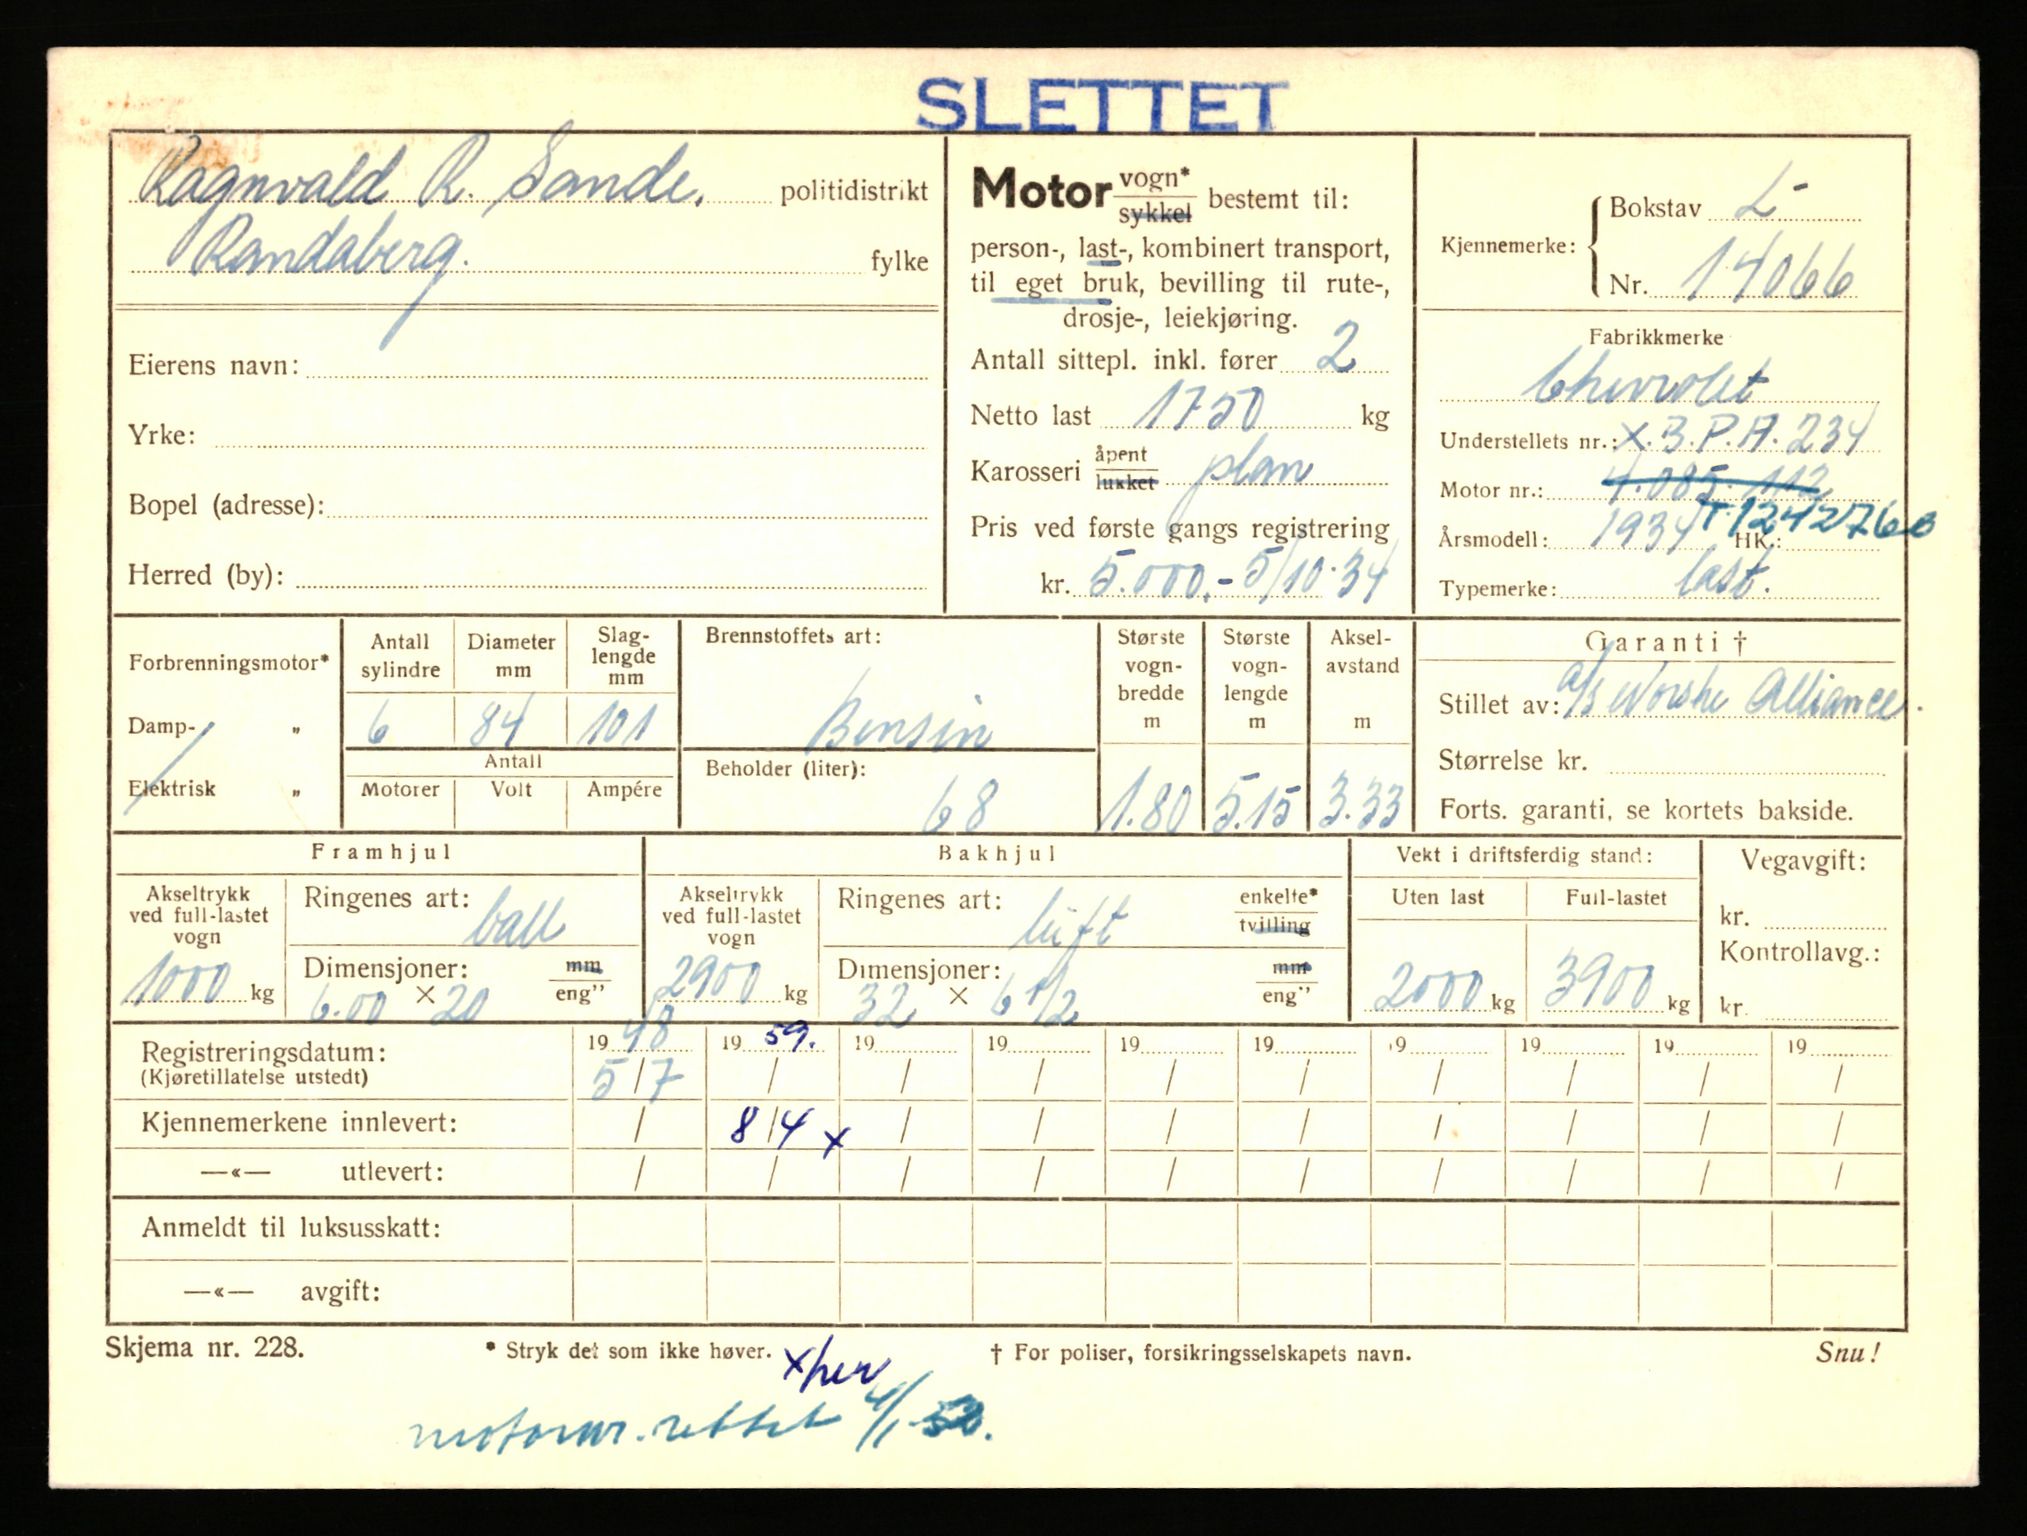 SLETTET
Ragnvald R. Sande. politidistrikt
Randaberg. fylke
Eierens navn:
Yrke:
Bopel (adresse):
Herred (by):
Motor vogn* sykkel bestemt til:
person-, last-, kombinert transport,
til eget bruk, bevilling til rute-,
drosje-, leiekjøring.
Antall sittepl. inkl. fører 2
Netto last 1750 kg
Karosseri åpent lukket plan
Pris ved første gangs registrering
kr. 5.000.- 5/10-34
Kjennemerke: Bokstav L-
Nr. 14066
Fabrikkmerke
Chevrolet
Understellets nr.: X.3.P.A.234
Motor nr.: 4.085.112
T.1242766
Årsmodell: 1934 HK.:
Typemerke: last.
Forbrenningsmotor*
Damp- „
Elektrisk „
Antall sylindre Diameter mm Slag-lengde mm
6 84 101
Antall
Motorer Volt Ampére
Brennstoffets art:
Bensin
Beholder (liter):
68
Største vogn-bredde m
1.80
Største vogn-lengde m
5.15
Aksel-avstand m
3.33
Garanti †
Stillet av: A/S Norske Alliance.
Størrelse kr.
Forts. garanti, se kortets bakside.
Framhjul
Akseltrykk ved full-lastet vogn
1000 kg
Ringenes art: ball
Dimensjoner: mm eng"
6.00 × 20
Bakhjul
Akseltrykk ved full-lastet vogn
2900 kg
Ringenes art: luft enkelte* tvilling
Dimensjoner: mm eng"
32 × 6 1/2
Vekt i driftsferdig stand:
Uten last Full-lastet
2000 kg 3900 kg
Vegavgift:
kr.
Kontrollavg.:
kr.
Registreringsdatum: 19 48 19 59. 19 19 19 19 19 19 19 19
(Kjøretillatelse utstedt) 5/7 / / / / / / / / /
Kjennemerkene innlevert: / 8/4 x / / / / / / / /
—«— utlevert: / / / / / / / / / /
Anmeldt til luksusskatt:
—«— avgift:
Skjema nr. 228. * Stryk det som ikke høver. † For poliser, forsikringsselskapets navn. Snu!
x her
motornr. rettet 4/1-